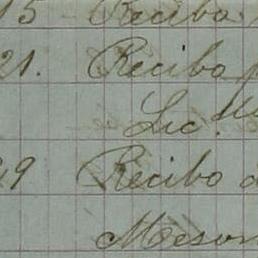 15 Recibo
21. Recibo
Lic.
29 Recibo
Meson